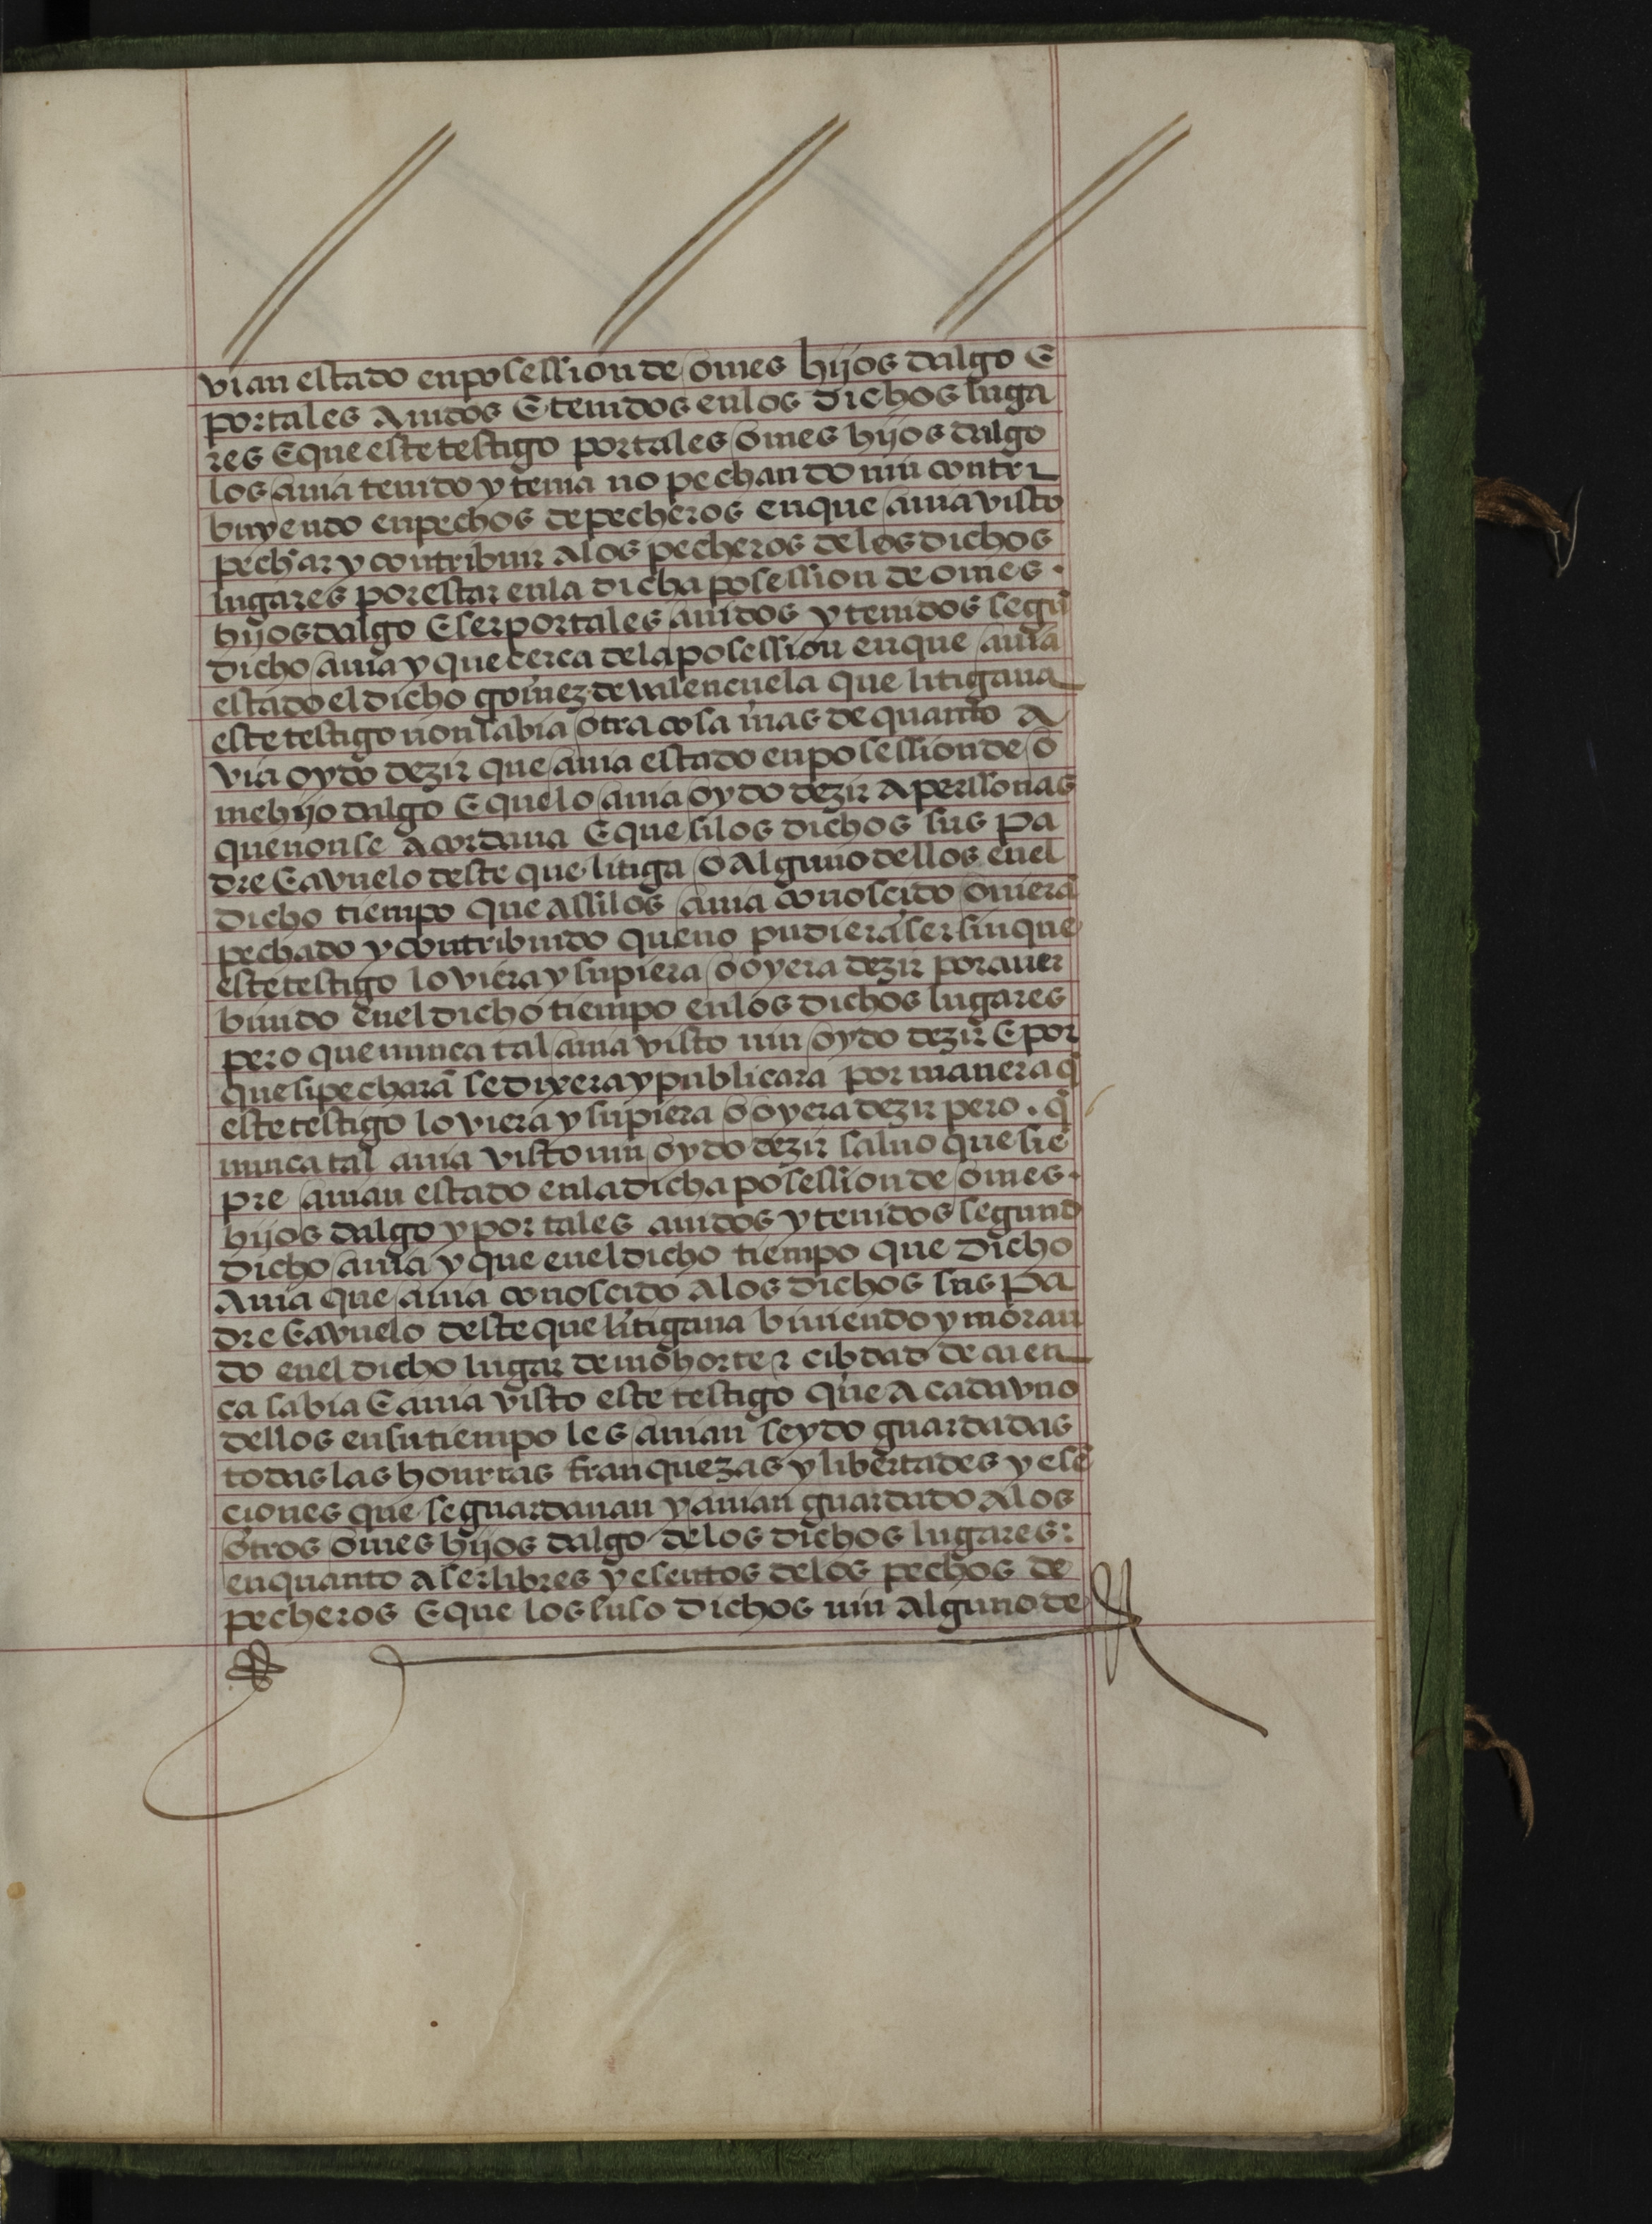 vian estado en posession de omes hijos dalgo E
por tales auidos E tenidos en los dichos luga
res E que este testigo por tales omes hijos dalgo
los auia tenido y tenia no pechando nin contri
buyendo en pechos de pecheros en que auia visto
pechar y contribuir a los pecheros de los dichos
lugares por estar en la dicha posession de omes .
hijos dalgo E ser por tales auidos y tenidos segũ
dicho auia y que cerca de la posession en que auia
estado el dicho gomez de valençuela que litigaua
este testigo non sabia otra cosa mas de quanto a
via oydo dezir que auia estado en posession de o
me hijo dalgo E que lo auia oydo dezir a perssonas
que non se acordaua E que si los dichos sus pa
dre E avuelo deste que litiga o alguno dellos en el
dicho tiempo que assi los auia conoscido ouierã
pechado y contribuido que no pudiera ser sin que
este testigo lo viera y supiera o oyera dezir por auer
biuido en el dicho tiempo en los dichos lugares
pero que nunca tal auia visto nin oydo dezir E por
que si pecharã se dixera y publicara por manera q̃
este testigo lo viera y supiera o oyera dezir pero . q̃
nunca tal auia visto nin oydo dezir saluo que siẽ
pre auian estado en la dicha posession de omes .
hijos dalgo y por tales auidos y tenidos segund
dicho auia y que en el dicho tiempo que dicho
auia que auia conoscido a los dichos sus pa
dre E avuelo deste que litigaua biuiendo y moran
do en el dicho lugar de mohorte z cibdad de cuen
ca sabia E auia visto este testigo que a cada vno
dellos en su tiempo les auian seydo guardadas
todas las honrras franquezas y libertades y esẽ
ciones que se guardauan y auian guardado a los
otros omes hijos dalgo de los dichos lugares :
en quanto a ser libres y esentos de los pechos de
pecheros E que los suso dichos nin alguno de